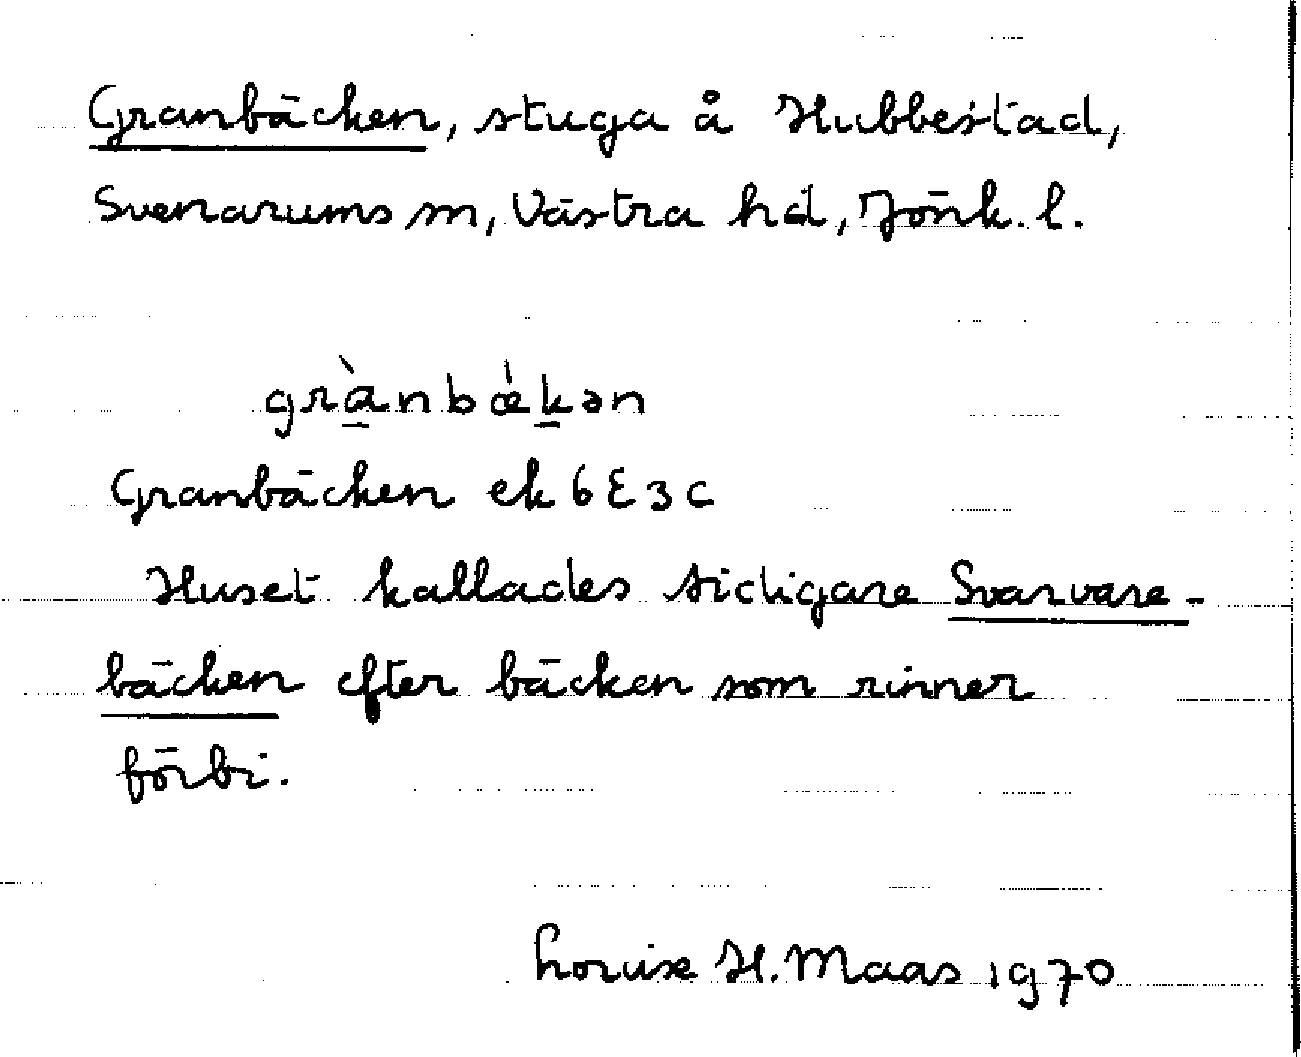 Granbäcken, stuga å Hubbestad,
Svenarums sn, Västra hd, Jönk. l.
grànbǽkən
Granbäcken ek 6E3c
Huset kallades tidigare Svarvare-
bäcken efter bäcken som rinner
förbi.
Louise H. Maas 1970